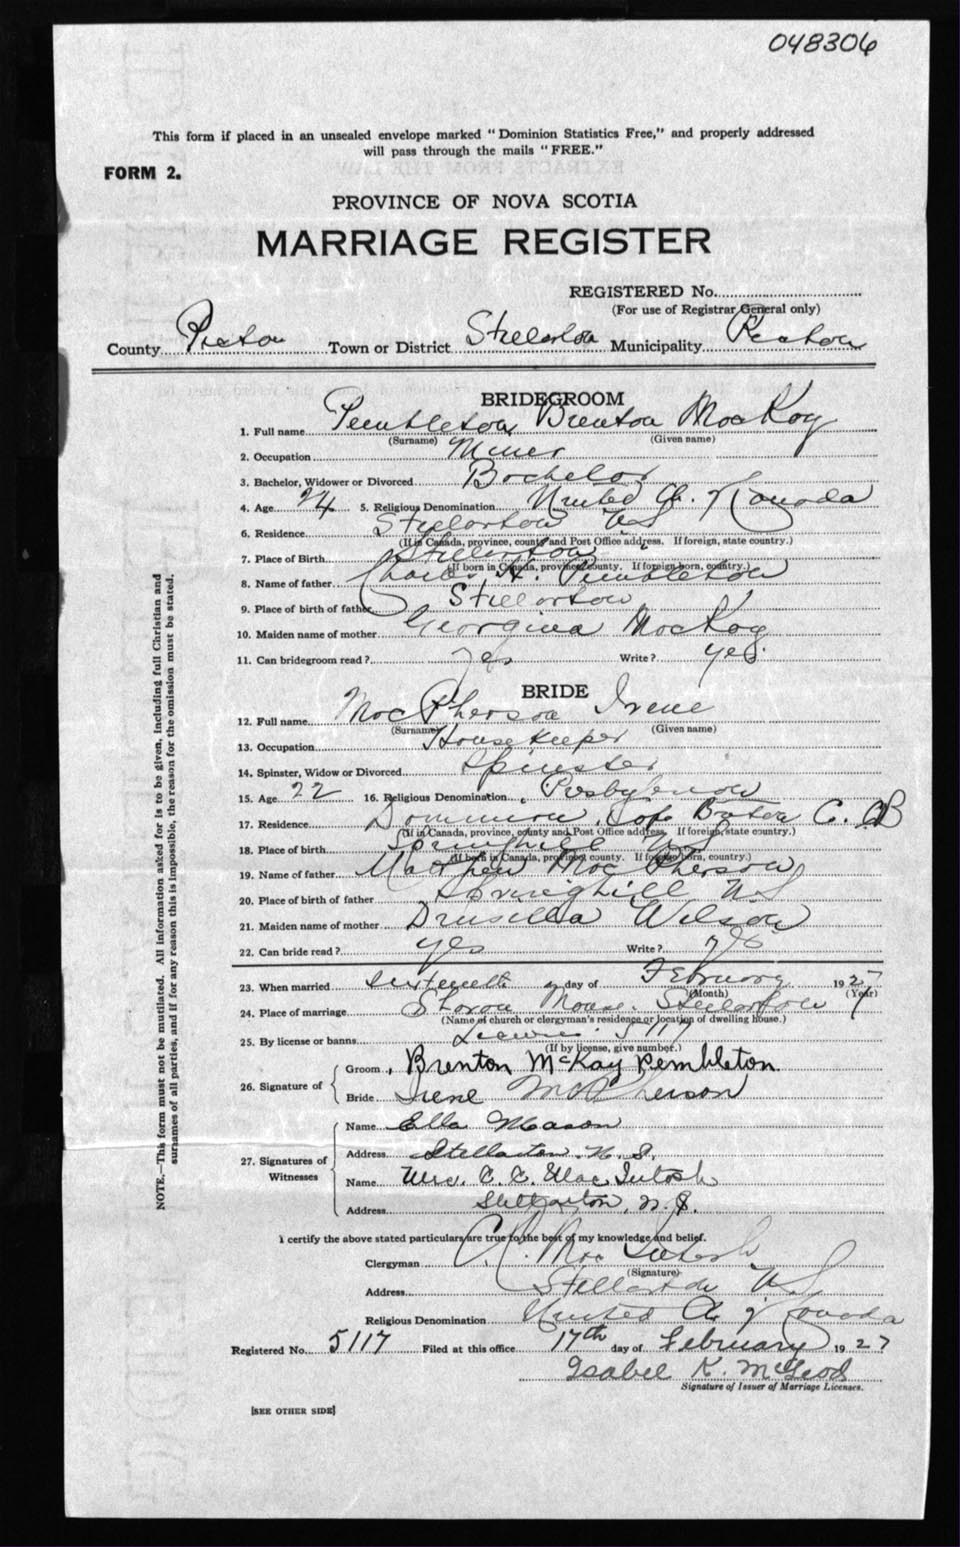 048306
This form if placed in an unsealed envelope marked "Dominion Statistics Free," and properly addressed
will pass through the mails "FREE."
FORM 2.
PROVINCE OF NOVA SCOTIA
MARRIAGE REGISTER
REGISTERED No.
(For use of Registrar General only)
County Pictou Town or District Stellarton Municipality Pictou
BRIDEGROOM
1. Full name Pembleton Brenton MacKay
(Surname) (Given name)
2. Occupation Miner
3. Bachelor, Widower or Divorced Bachelor
4. Age 24 5. Religious Denomination United Ch. of Canada
6. Residence Stellarton NS
(If in Canada, province, county and Post Office address. If foreign, state country.)
7. Place of Birth Stellarton
(If born in Canada, province, county. If foreign born, country.)
8. Name of father Charles H. Pembleton
9. Place of birth of father Stellarton
10. Maiden name of mother Georgina MacKay
11. Can bridegroom read? yes Write? yes.
BRIDE
12. Full name MacPherson Irene
(Surname) (Given name)
13. Occupation Housekeeper
14. Spinster, Widow or Divorced Spinster
15. Age 22 16. Religious Denomination Presbyterian
17. Residence Dominion, Cape Breton C. B
(If in Canada, province, county and Post Office address. If foreign, state country.)
18. Place of birth Springhill NS
(If born in Canada, province, county. If foreign born, country.)
19. Name of father Matthew MacPherson
20. Place of birth of father Springhill NS
21. Maiden name of mother Drusilla Wilson
22. Can bride read? yes Write? yes
23. When married sixteenth day of February 1927
(Month) (Year)
24. Place of marriage Sharon Manse, Stellarton
(Name of church or clergyman's residence or location of dwelling house.)
25. By license or banns License 5117
(If by license, give number.)
26. Signature of
Groom Brenton McKay Pembleton
Bride Irene McPherson
27. Signatures of Witnesses
Name Ella Meason
Address Stellarton. N. S.
Name Mrs. C. C. MacIntosh
Address Stellarton, N. S.
I certify the above stated particulars are true to the best of my knowledge and belief.
Clergyman C. C. MacIntosh
(Signature)
Address Stellarton NS
Religious Denomination United Ch of Canada
Registered No. 5117 Filed at this office 17th day of February 1927
Isabel K. McLeod
Signature of Issuer of Marriage Licenses.
[SEE OTHER SIDE]
NOTE.—This form must not be mutilated. All information asked for is to be given, including full Christian and
surnames of all parties, and if for any reason this is impossible, the reason for the omission must be stated.